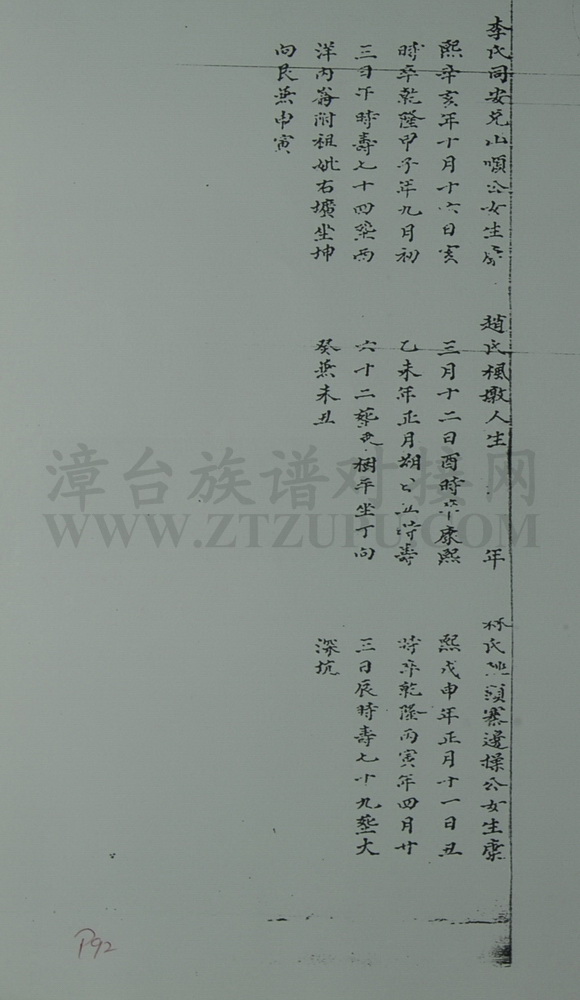 李氏同安兑山順公女生康
熙辛亥年十月十六日亥
時卒乾隆甲子年九月初
三日午時壽七十四葬西
洋內崙附祖妣右壙坐坤
向艮兼申寅
趙氏楓墩人生 年
三月十二日酉時卒康熙
乙未年正月朔日丑時壽
六十二葬 樹平坐丁向
癸兼未丑
林氏 頭寨邊操公女生康
熙戊申年正月十一日丑
時卒乾隆丙寅年四月廿
三日辰時壽七十九葬大
深坑
漳台族谱对接网
WWW.ZTZUPU.COM
P92